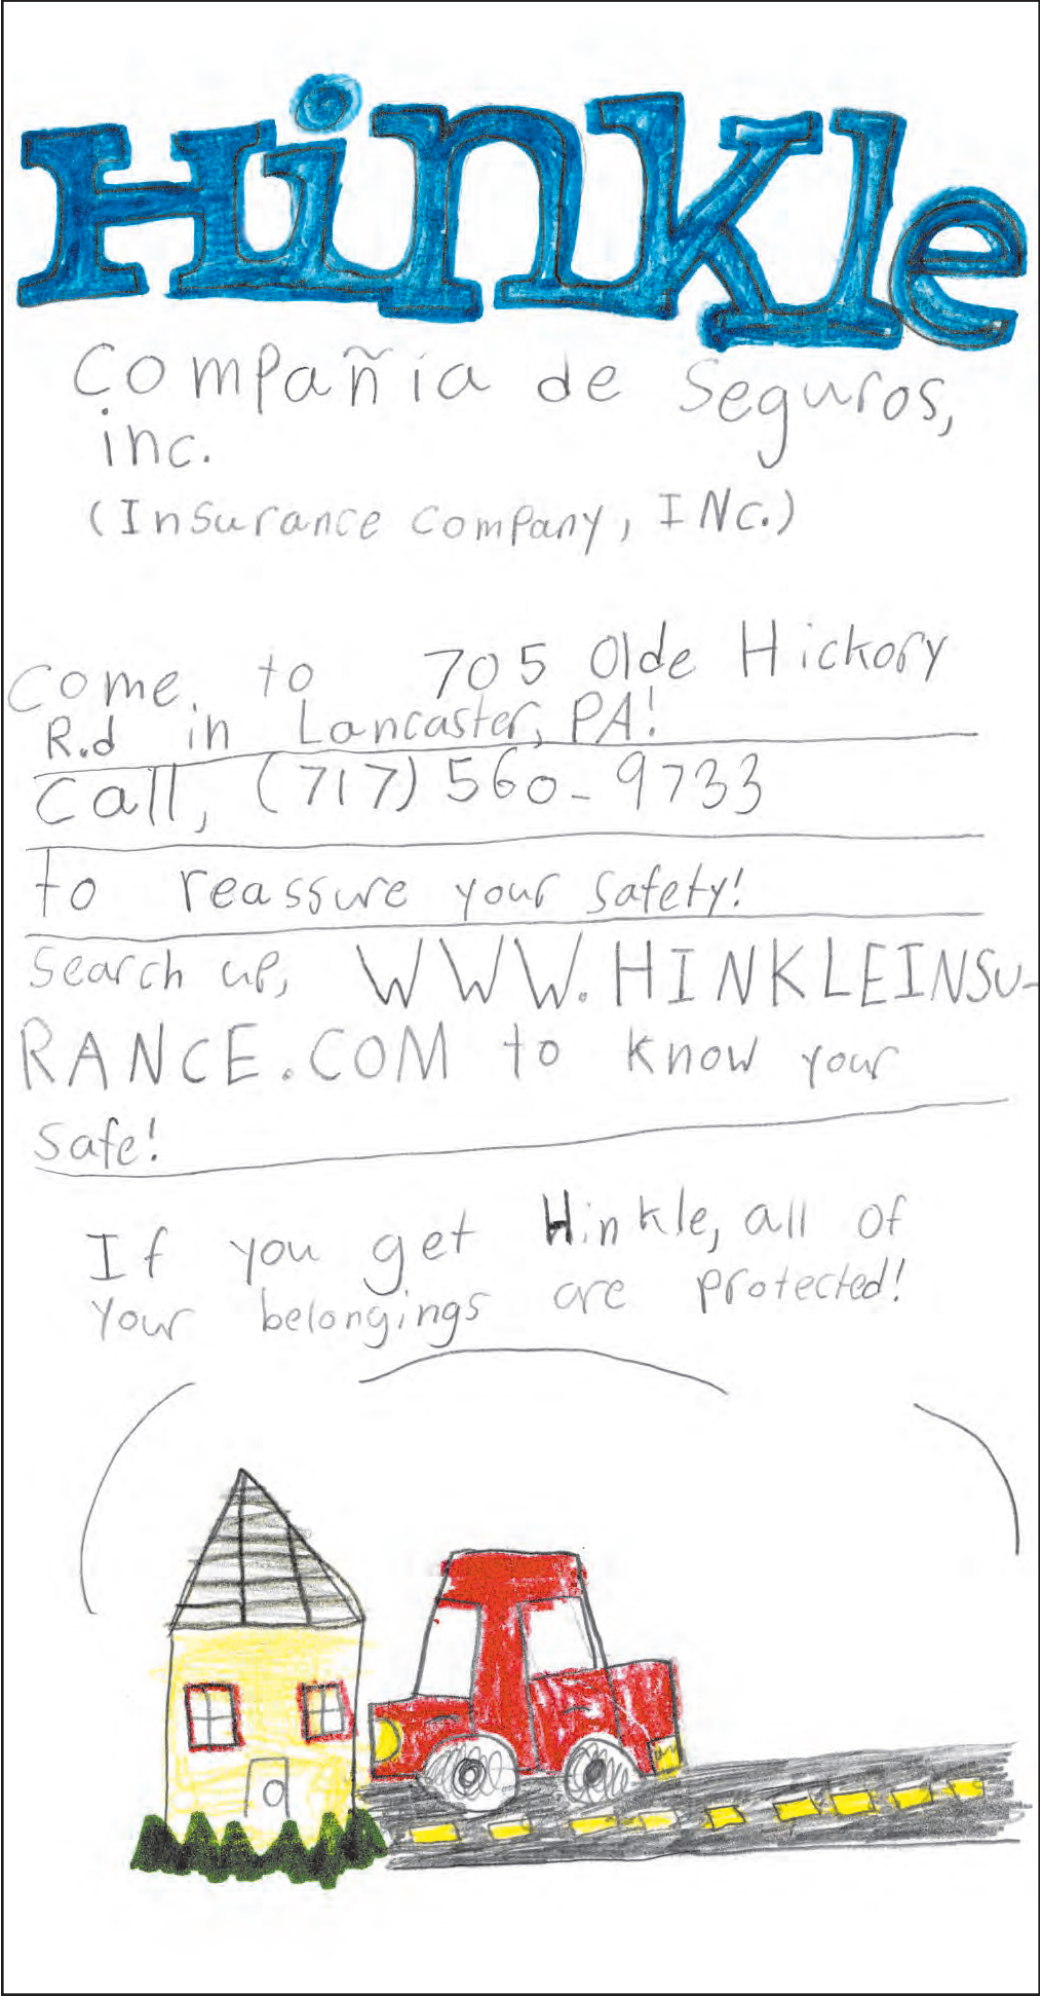 Hinkle
Compañia de Seguros,
inc.
(Insurance Company, INc.)
Come. to 705 Olde Hickory
R.d in Lancaster, PA!
Call, (717) 560-9733
to reassure your safety!
Search up, WWW.HINKLEINSU-
RANCE.COM to know your
Safe!
If you get Hinkle, all of
Your belongings are protected!